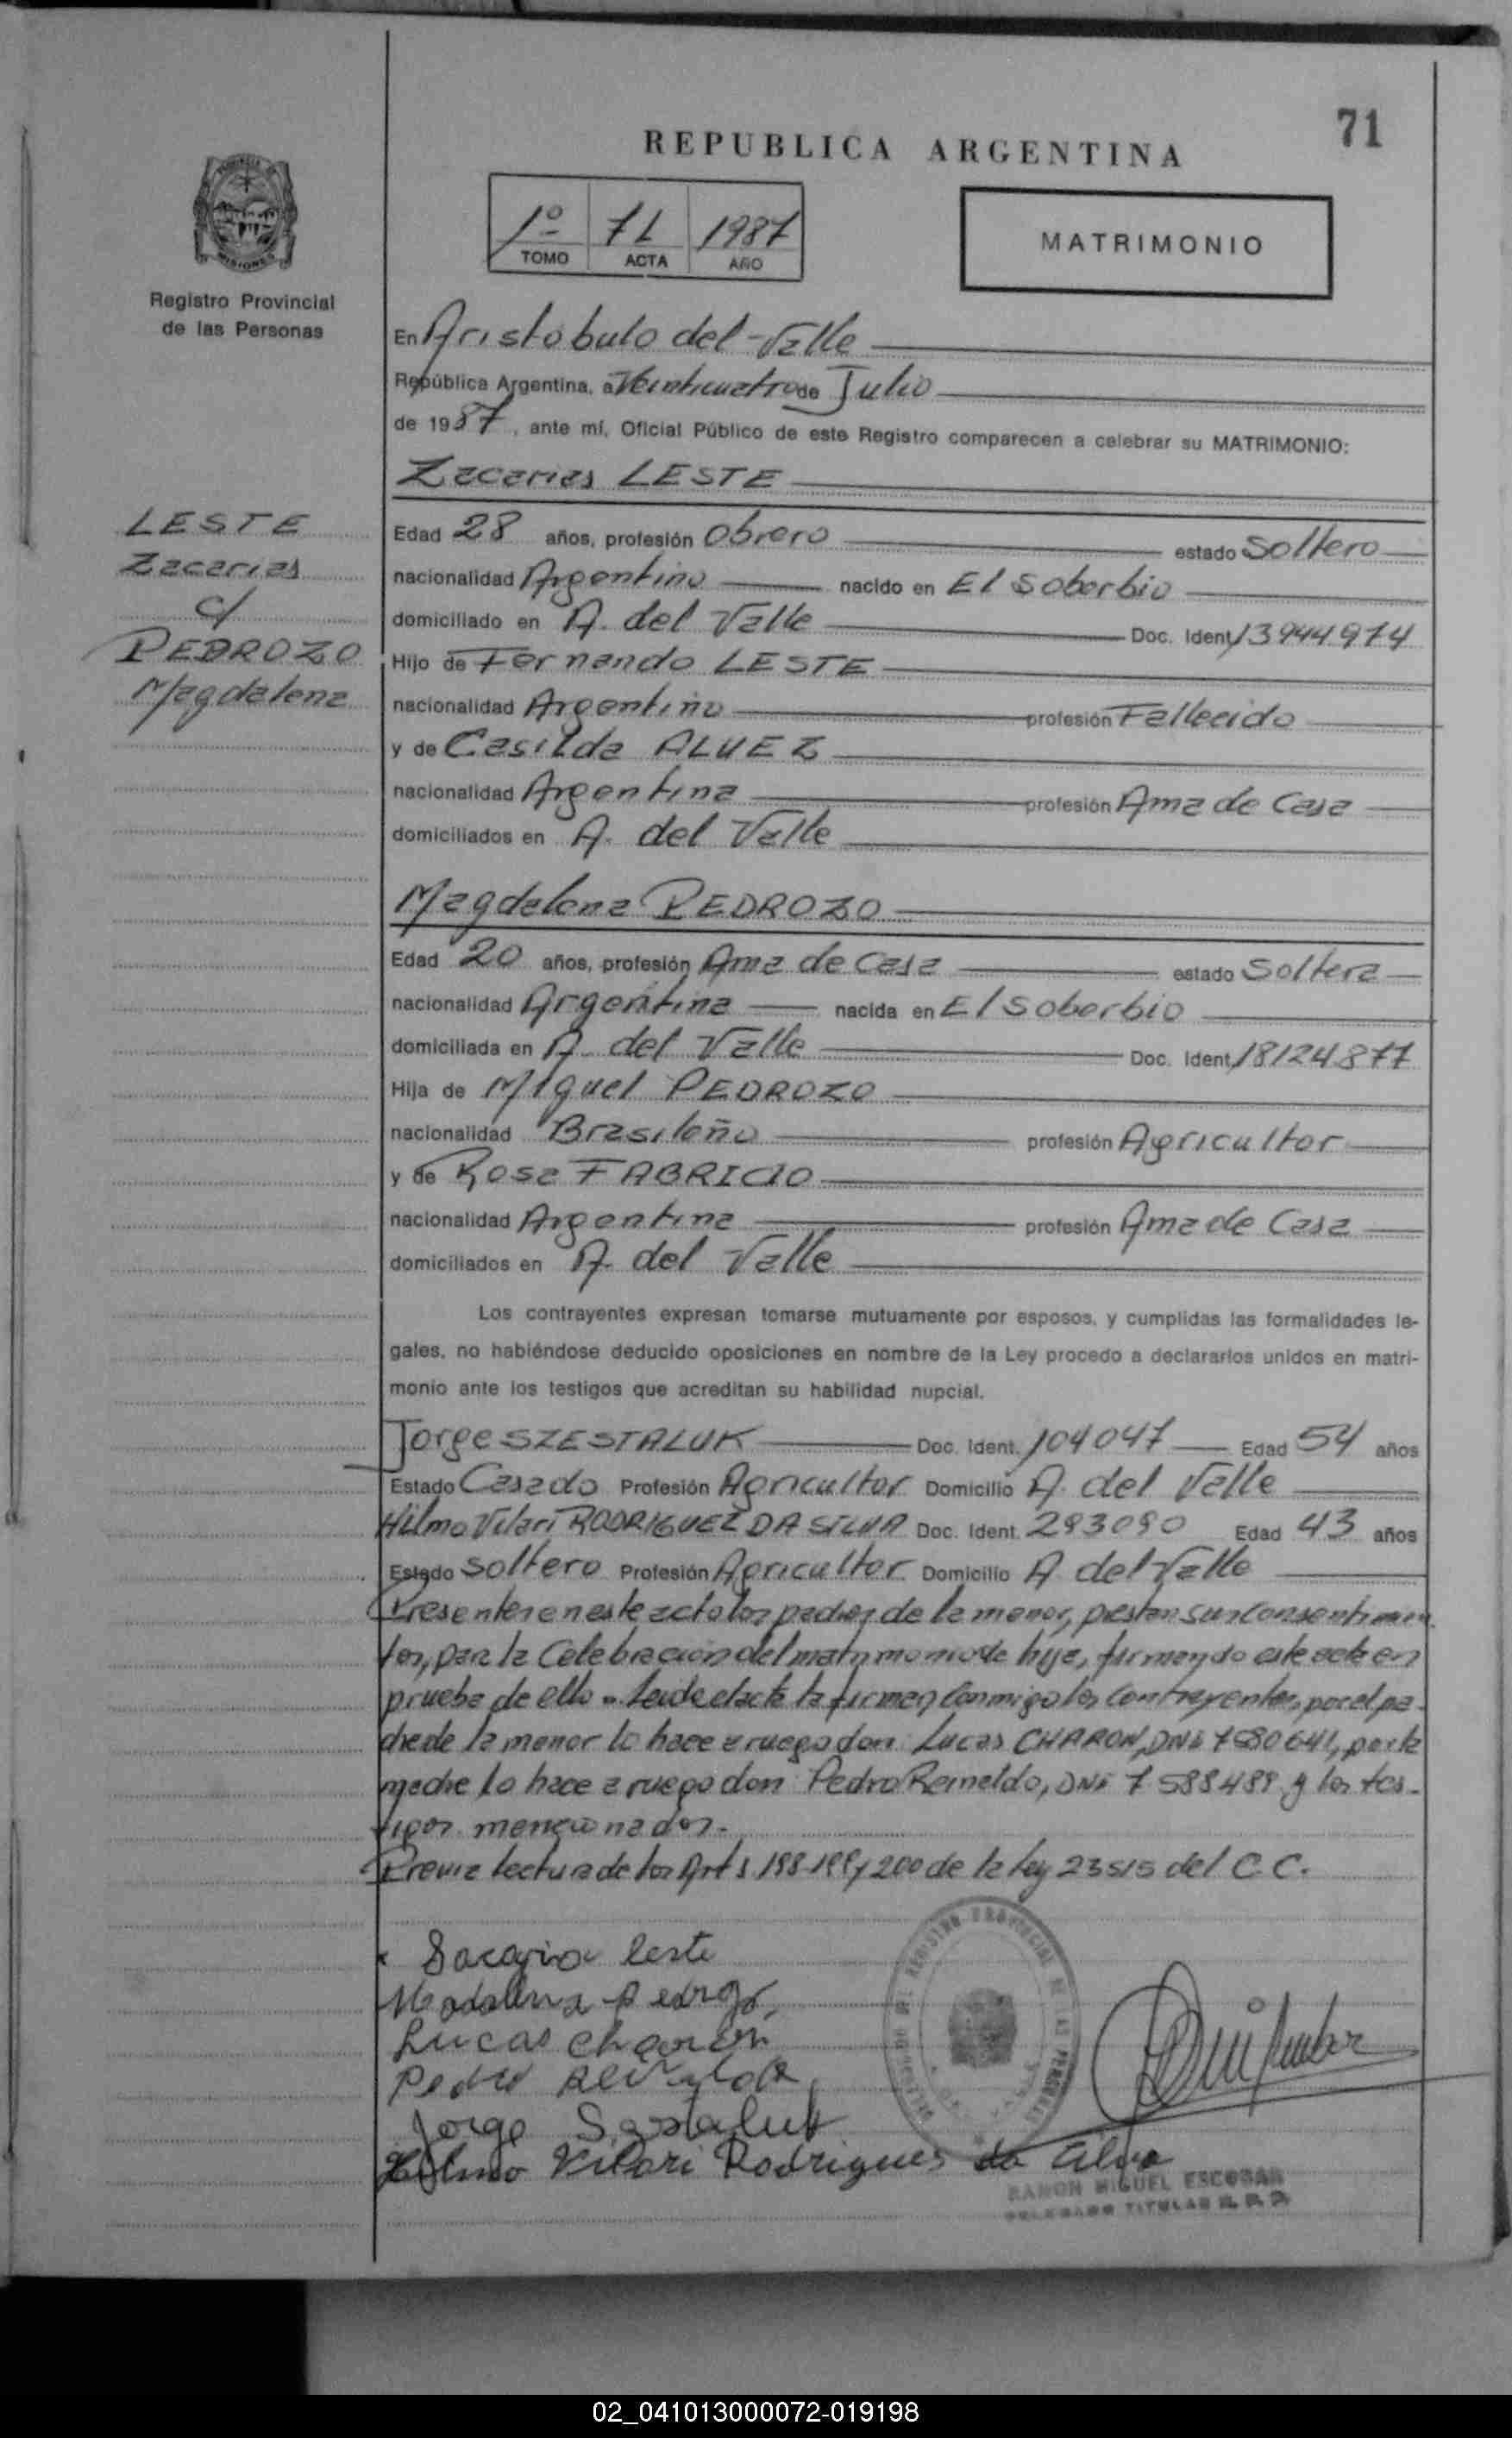 71
REPUBLICA ARGENTINA
1º 71 1987
TOMO ACTA AÑO
MATRIMONIO
MISIONES
Registro Provincial
de las Personas
En Aristóbulo del Valle
República Argentina, a Veinticuatro de Julio
de 1987, ante mí, Oficial Público de este Registro comparecen a celebrar su MATRIMONIO:
Zacarias LESTE
LESTE
Zacarias
c/
PEDROZO
Magdalena
Edad 28 años, profesión Obrero estado Soltero
nacionalidad Argentino nacido en El Soberbio
domiciliado en A. del Valle Doc. Ident. 13944974
Hijo de Fernando LESTE
nacionalidad Argentino profesión Fallecido
y de Casilda ALVEZ
nacionalidad Argentina profesión Ama de Casa
domiciliados en A. del Valle
Magdalena PEDROZO
Edad 20 años, profesión Ama de Casa estado Soltera
nacionalidad Argentina nacida en El Soberbio
domiciliada en A. del Valle Doc. Ident. 18124877
Hija de Miguel PEDROZO
nacionalidad Brasileño profesión Agricultor
y de Rosa FABRICIO
nacionalidad Argentina profesión Ama de Casa
domiciliados en A. del Valle
Los contrayentes expresan tomarse mutuamente por esposos, y cumplidas las formalidades le-
gales, no habiéndose deducido oposiciones en nombre de la Ley procedo a declararlos unidos en matri-
monio ante los testigos que acreditan su habilidad nupcial.
Jorge SZESTALUK Doc. Ident. 104047 Edad 54 años
Estado Casado Profesión Agricultor Domicilio A. del Valle
Hilmo Vilari RODRIGUEZ DA SILVA Doc. Ident. 293090 Edad 43 años
Estado Soltero Profesión Agricultor Domicilio A del Valle
Presentes en este acto los padres de la menor, prestan sus consentimien
tos, para la Celebracion del matrimonio de hija, firmando este acta en
prueba de ello.- Leida el acta la firman conmigo los Contrayentes, por el pa-
dre de la menor lo hace a ruego don: Lucas CHARON, DNI 7580641, por la
madre lo hace a ruego don Pedro Reinaldo, DNI 7.588489 y los tes-
tigos mencionados.-
Previa lectura de los Arts 198-199 y 200 de la Ley 23515 del C.C.
Sacaria leste
Madalena Pedrozo
Lucas Charon
Pedro Reinaldo
Jorge Sestaluk
Hilmo Vilari Rodrigues da Silva
RAMON MIGUEL ESCOBAR
DELEGADO TITULAR R. P. P.
02_041013000072-019198